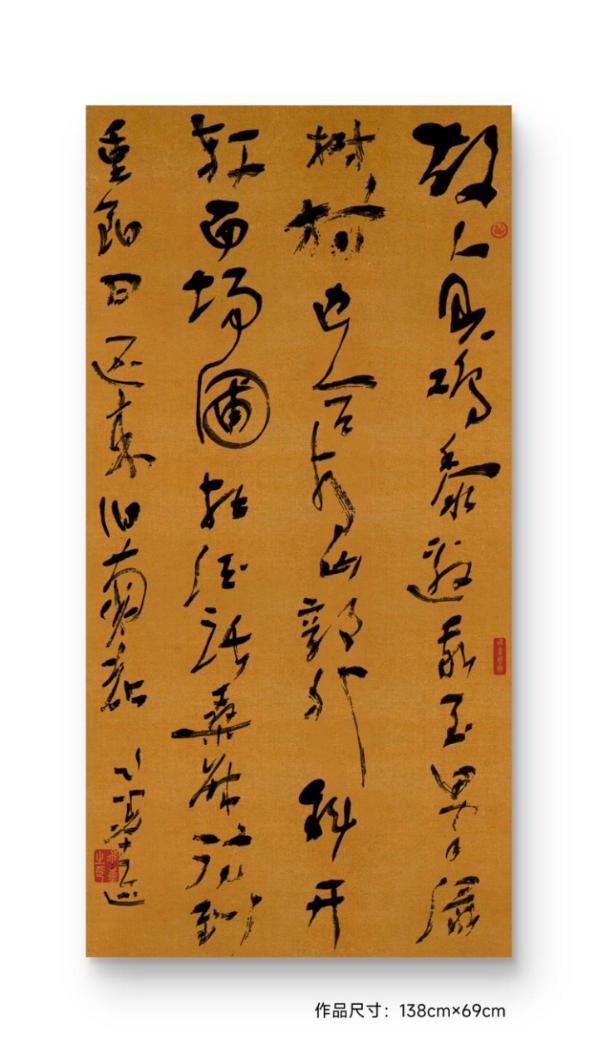 故人具鸡黍邀我至田家绿
树村边合青山郭外斜开
轩面场圃把酒话桑麻待到
重阳日还来就菊花
作品尺寸：138cm×69cm